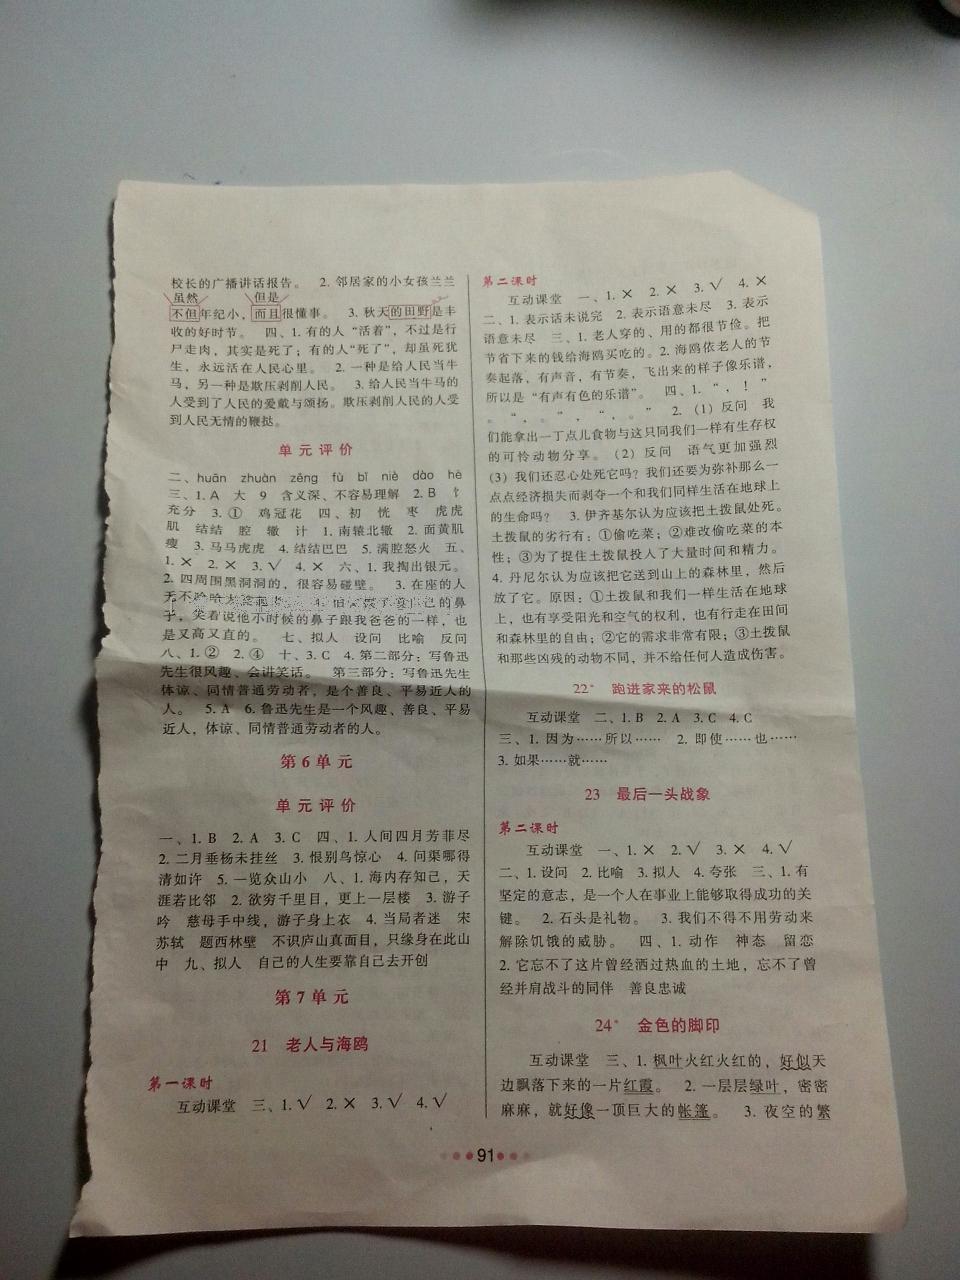 校长的广播讲话报告。 2. 邻居家的小女孩兰兰
虽然 但是
不但年纪小，而且很懂事。 3. 秋天的田野是丰
收的好时节。 四、1. 有的人“活着”，不过是行
尸走肉，其实是死了；有的人“死了”，却虽死犹
生，永远活在人民心里。 2. 一种是给人民当牛
马，另一种是欺压剥削人民。 3. 给人民当牛马的
人受到了人民的爱戴与颂扬。欺压剥削人民的人受
到人民无情的鞭挞。
单元评价
二、huān zhuàn zēng fù bǐ niè dào hè
三、1. A 大 9 含义深、不容易理解 2. B 忄
充分 3. ① 鸡冠花 四、初 恍 枣 虎虎
肌 结结 腔 辙 计 1. 南辕北辙 2. 面黄肌
瘦 3. 马马虎虎 4. 结结巴巴 5. 满腔怒火 五、
1. × 2. × 3. √ 4. × 六、1. 我掏出银元。
2. 四周围黑洞洞的，很容易碰壁。 3. 在座的人
子，笑着说他小时候的鼻子跟我爸爸的一样，也
是又高又直的。 七、拟人 设问 比喻 反问
八、1. ② 2. ④ 十、3. C 4. 第二部分：写鲁迅
先生很风趣、会讲笑话。 第三部分：写鲁迅先生
体谅、同情普通劳动者，是个善良、平易近人的
人。 5. A 6. 鲁迅先生是一个风趣、善良、平易
近人，体谅、同情普通劳动者的人。
第 6 单元
单元评价
一、1. B 2. A 3. C 四、1. 人间四月芳菲尽
2. 二月垂杨未挂丝 3. 恨别鸟惊心 4. 问渠哪得
清如许 5. 一览众山小 八、1. 海内存知己，天
涯若比邻 2. 欲穷千里目，更上一层楼 3. 游子
吟 慈母手中线，游子身上衣 4. 当局者迷 宋
苏轼 题西林壁 不识庐山真面目，只缘身在此山
中 九、拟人 自己的人生要靠自己去开创
第 7 单元
21 老人与海鸥
第一课时
互动课堂 三、1. √ 2. × 3. √ 4. √
第二课时
互动课堂 一、1. × 2. × 3. √ 4. ×
二、1. 表示话未说完 2. 表示语意未尽 3. 表示
语意未尽 三、1. 老人穿的、用的都很节俭。把
节省下来的钱给海鸥买吃的。2. 海鸥依老人的节
奏起落，有声音，有节奏，飞出来的样子像乐谱，
所以是“有声有色的乐谱”。 四、1. “ ， ！ ”
。 “ ， ” ， “ ， 。” 2. （1）反问 我
们能拿出一丁点儿食物与这只同我们一样有生存权
的可怜动物分享。（2）反问 语气更加强烈
（3）我们还忍心处死它吗？我们还要为弥补那么一
点点经济损失而剥夺一个和我们同样生活在地球上
的生命吗？ 3. 伊齐基尔认为应该把土拨鼠处死。
土拨鼠的劣行有：①偷吃菜；②难改偷吃菜的本
性；③为了捉住土拨鼠投入了大量时间和精力。
4. 丹尼尔认为应该把它送到山上的森林里，然后
放了它。原因：①土拨鼠和我们一样生活在地球
上，也有享受阳光和空气的权利，也有行走在田间
和森林里的自由；②它的需求非常有限；③土拨鼠
和那些凶残的动物不同，并不给任何人造成伤害。
22* 跑进家来的松鼠
互动课堂 二、1. B 2. A 3. C 4. C
三、1. 因为……所以…… 2. 即使……也……
3. 如果……就……
23 最后一头战象
第二课时
互动课堂 一、1. × 2. √ 3. × 4. √
二、1. 设问 2. 比喻 3. 拟人 4. 夸张 三、1. 有
坚定的意志，是一个人在事业上能够取得成功的关
键。 2. 石头是礼物。 3. 我们不得不用劳动来
解除饥饿的威胁。 四、1. 动作 神态 留恋
2. 它忘不了这片曾经洒过热血的土地，忘不了曾
经并肩战斗的同伴 善良忠诚
24* 金色的脚印
互动课堂 三、1. 枫叶火红火红的，好似天
边飘落下来的一片红霞。 2. 一层层绿叶，密密
麻麻，就好像一顶巨大的帐篷。 3. 夜空的繁
91